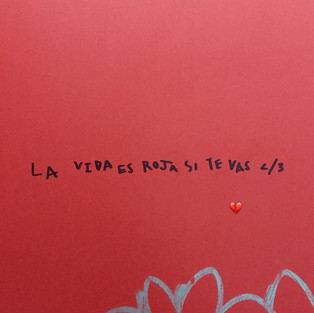 LA VIDA ES ROJA SI TE VAS </3